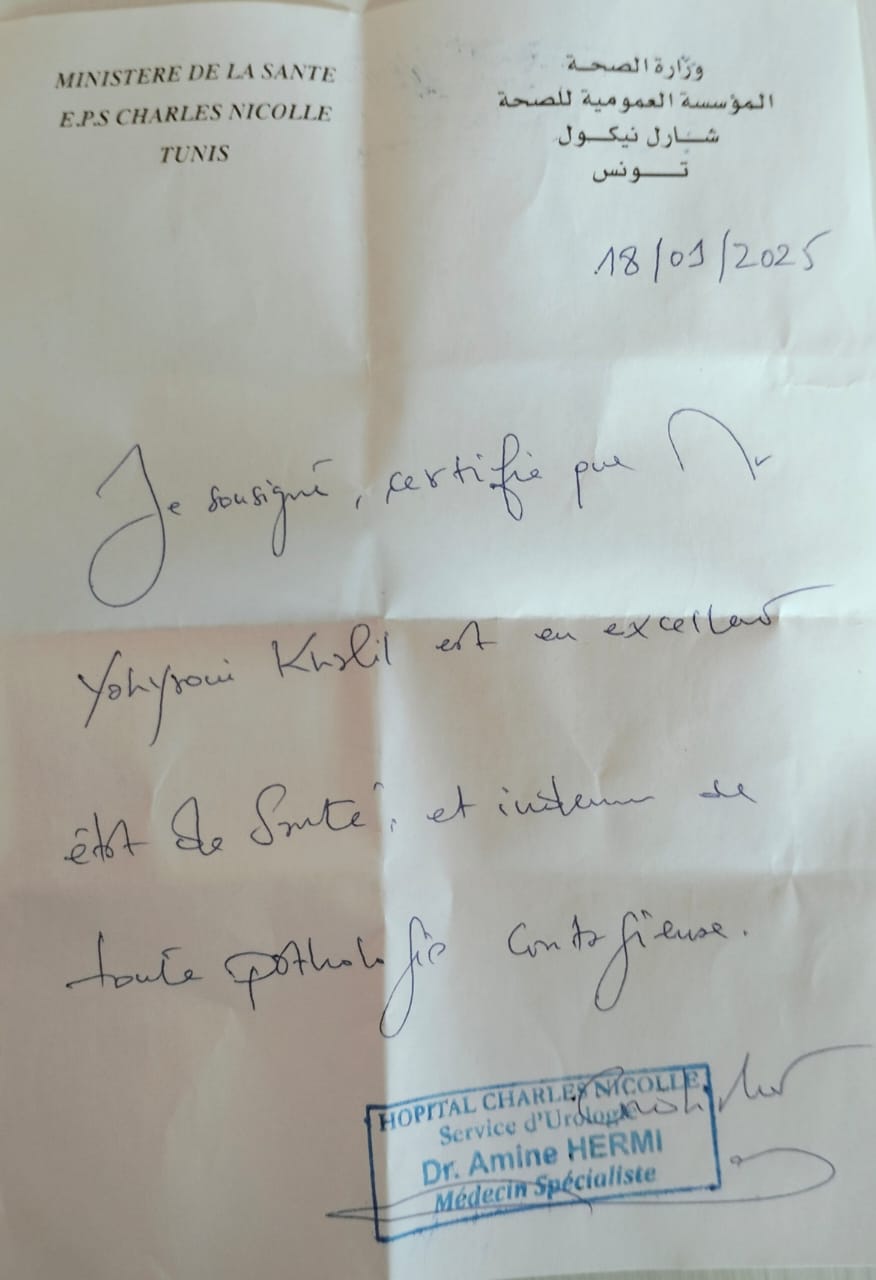 MINISTERE DE LA SANTE
E.P.S CHARLES NICOLLE
TUNIS
وزارة الصحة
المؤسسة العمومية للصحة
شارل نيكول
تونس
18/01/2025
Je sousigné, certifie que Mr
Yahyaoui Khalil est en excellent
état de Santé, et indemne de
toute pathologie contagieuse.
HOPITAL CHARLES NICOLLE
Service d'Urologie
Dr. Amine HERMI
Médecin Spécialiste